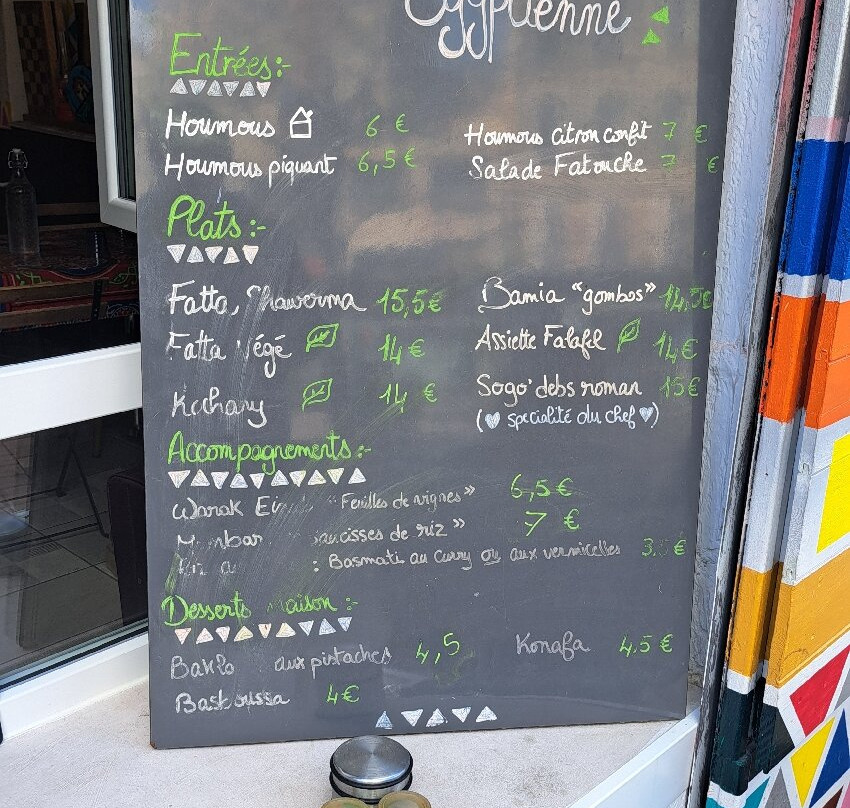 Egyptienne
Entrées:-
Houmous 6 €
Houmous citron confit 7 €
Houmous piquant 6,5 €
Salade Fatouche 7 €
Plats:-
Fatta, Shaworma 15,5€
Bamia "gombos" 14,5€
Fatta végé 14 €
Assiette Falafel 14€
Kochary 14 €
Sogo' debs roman 15€
(specialité du chef)
Accompagnements:-
Warak "Feuilles de vignes" 6,5€
Mombar saucisses de riz" 7 €
: Basmati au curry ou aux vermicelles €
Desserts maison:-
aux pistaches 4,5
Konafa 4,5 €
Basboussa 4€